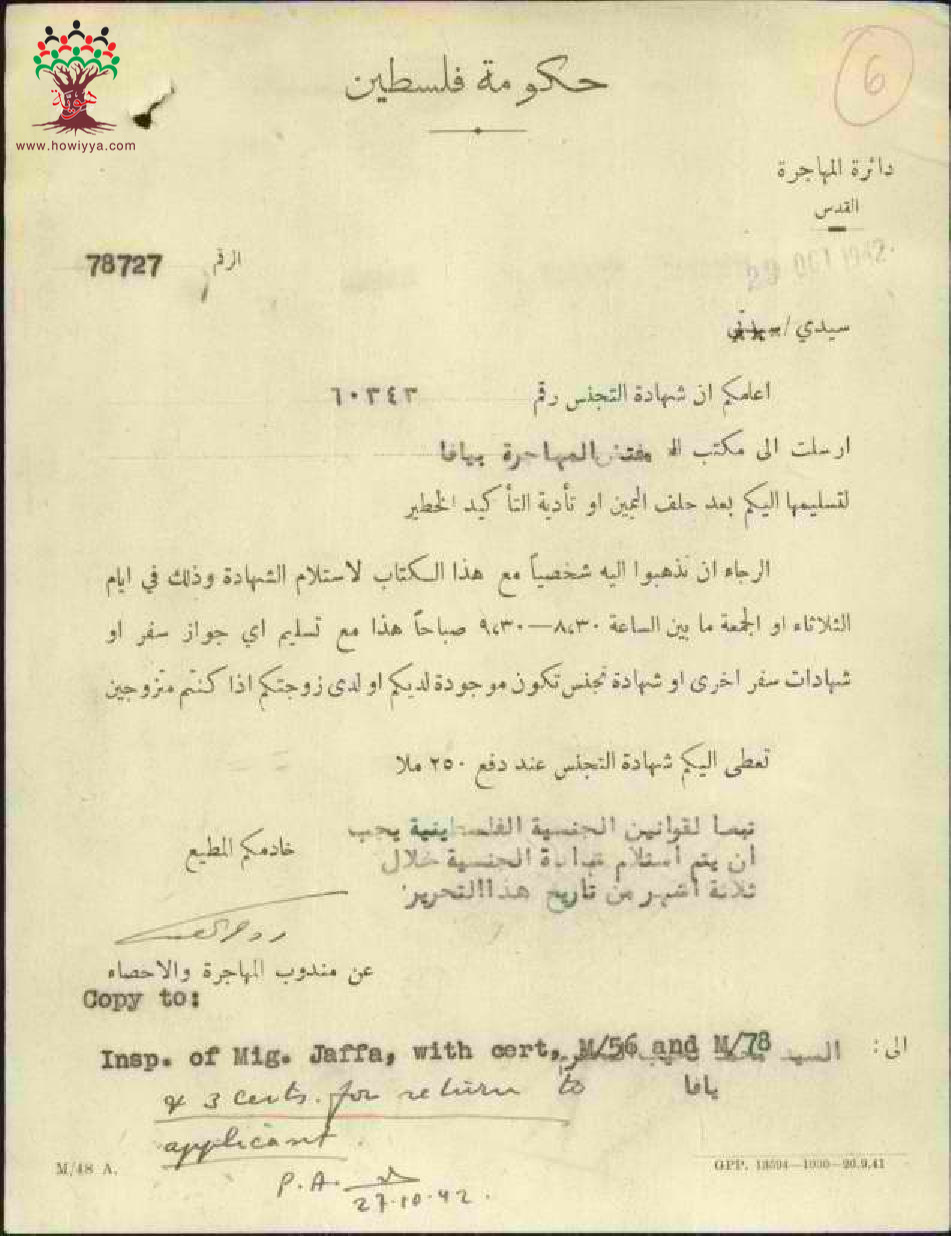 www.howiyya.com
6
حكومة فلسطين
دائرة المهاجرة
القدس
29 OCT 1942.
الرقم 78727
سيدي/سيدتي
اعلمكم ان شهادة التجنس رقم ٦٠٣٤٣
ارسلت الى مكتب الـ مفتش المهاجرة بيافا
لتسليمها اليكم بعد حلف اليمين او تأدية التأكيد الخطير
الرجاء ان تذهبوا اليه شخصياً مع هذا الكتاب لاستلام الشهادة وذلك في ايام
الثلاثاء او الجمعة ما بين الساعة ٨،٣٠—٩،٣٠ صباحاً هذا مع تسليم اي جواز سفر او
شهادات سفر اخرى او شهادة تجنس تكون موجودة لديكم او لدى زوجتكم اذا كنتم متزوجين
تعطى اليكم شهادة التجنس عند دفع ٢٥٠ ملا
تبعا لقوانين الجنسية الفلسطينية يجب
ان يتم استلام شهادة الجنسية خلال
ثلاثة اشهر من تاريخ هذا التحرير.
خادمكم المطيع
عن مندوب المهاجرة والاحصاء
Copy to:
الى: السيد
Insp. of Mig. Jaffa, with cert, M/56 and M/78
يافا
& 3 certs. for return to
applicant.
P.A.
27.10.42.
M/48 A.
GPP. 13594—1000—20.9.41